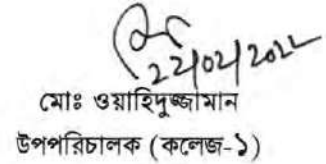 22/02/2022
মোঃ ওয়াহিদুজ্জামান
উপপরিচালক (কলেজ-১)